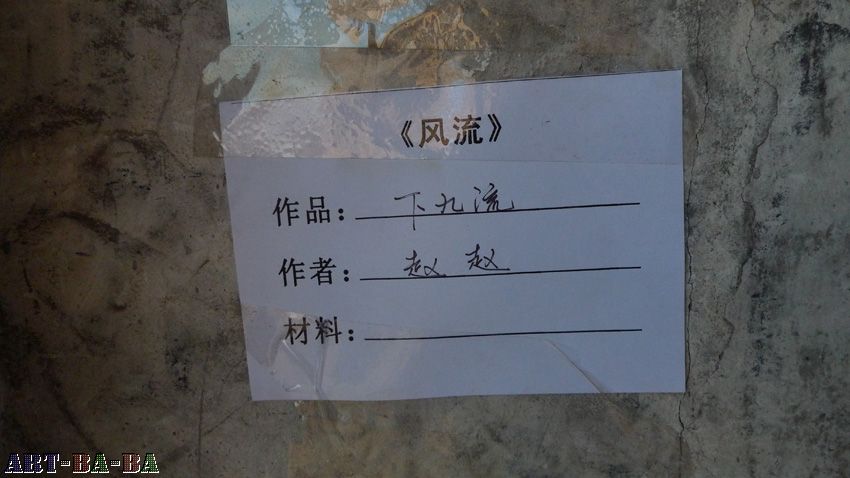 《风流》
作品：下九流
作者：赵赵
材料：
ART-BA-BA